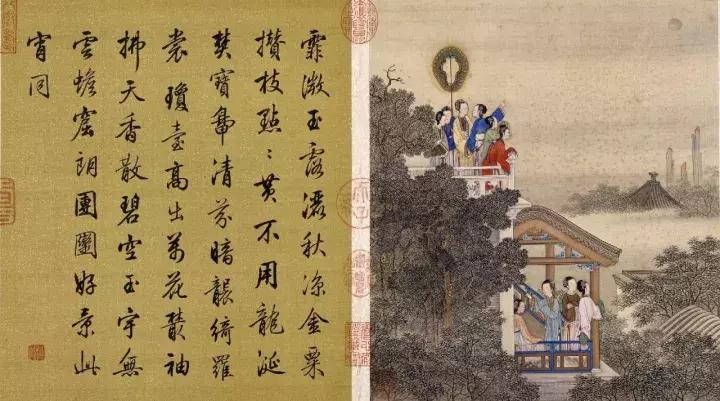 霏微玉露灑秋涼金粟
攢枝點〻黄不用龍涎
焚寶鼎清芬暗襲綺羅
裳瓊臺高出萬花叢袖
拂天香散碧空玉宇無
雲蟾窟朗團圞好景此
宵同